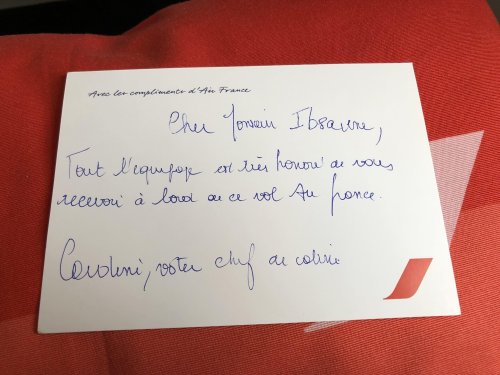 Avec les compliments d'Air France
Cher Monsieur
Tout l'équipage est très honoré de vous
recevoir à bord de ce vol Air france.
votre chef de cabine